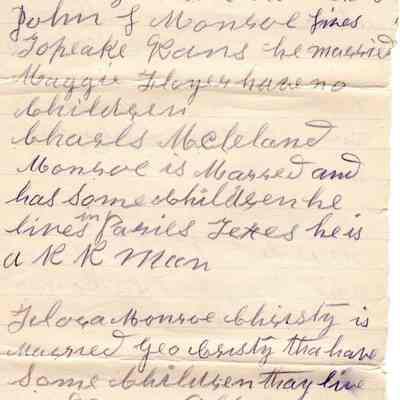 John J Monroe lives
Topeake Kans he married
Maggie Floyer have no
Children
Charls McLeland
Monroe is Marred and
has some Children he
lives in Paries Texes he is
a R R Man
Flora Monroe Christy is
Married Geo Cristy tha have
Some Children thay live